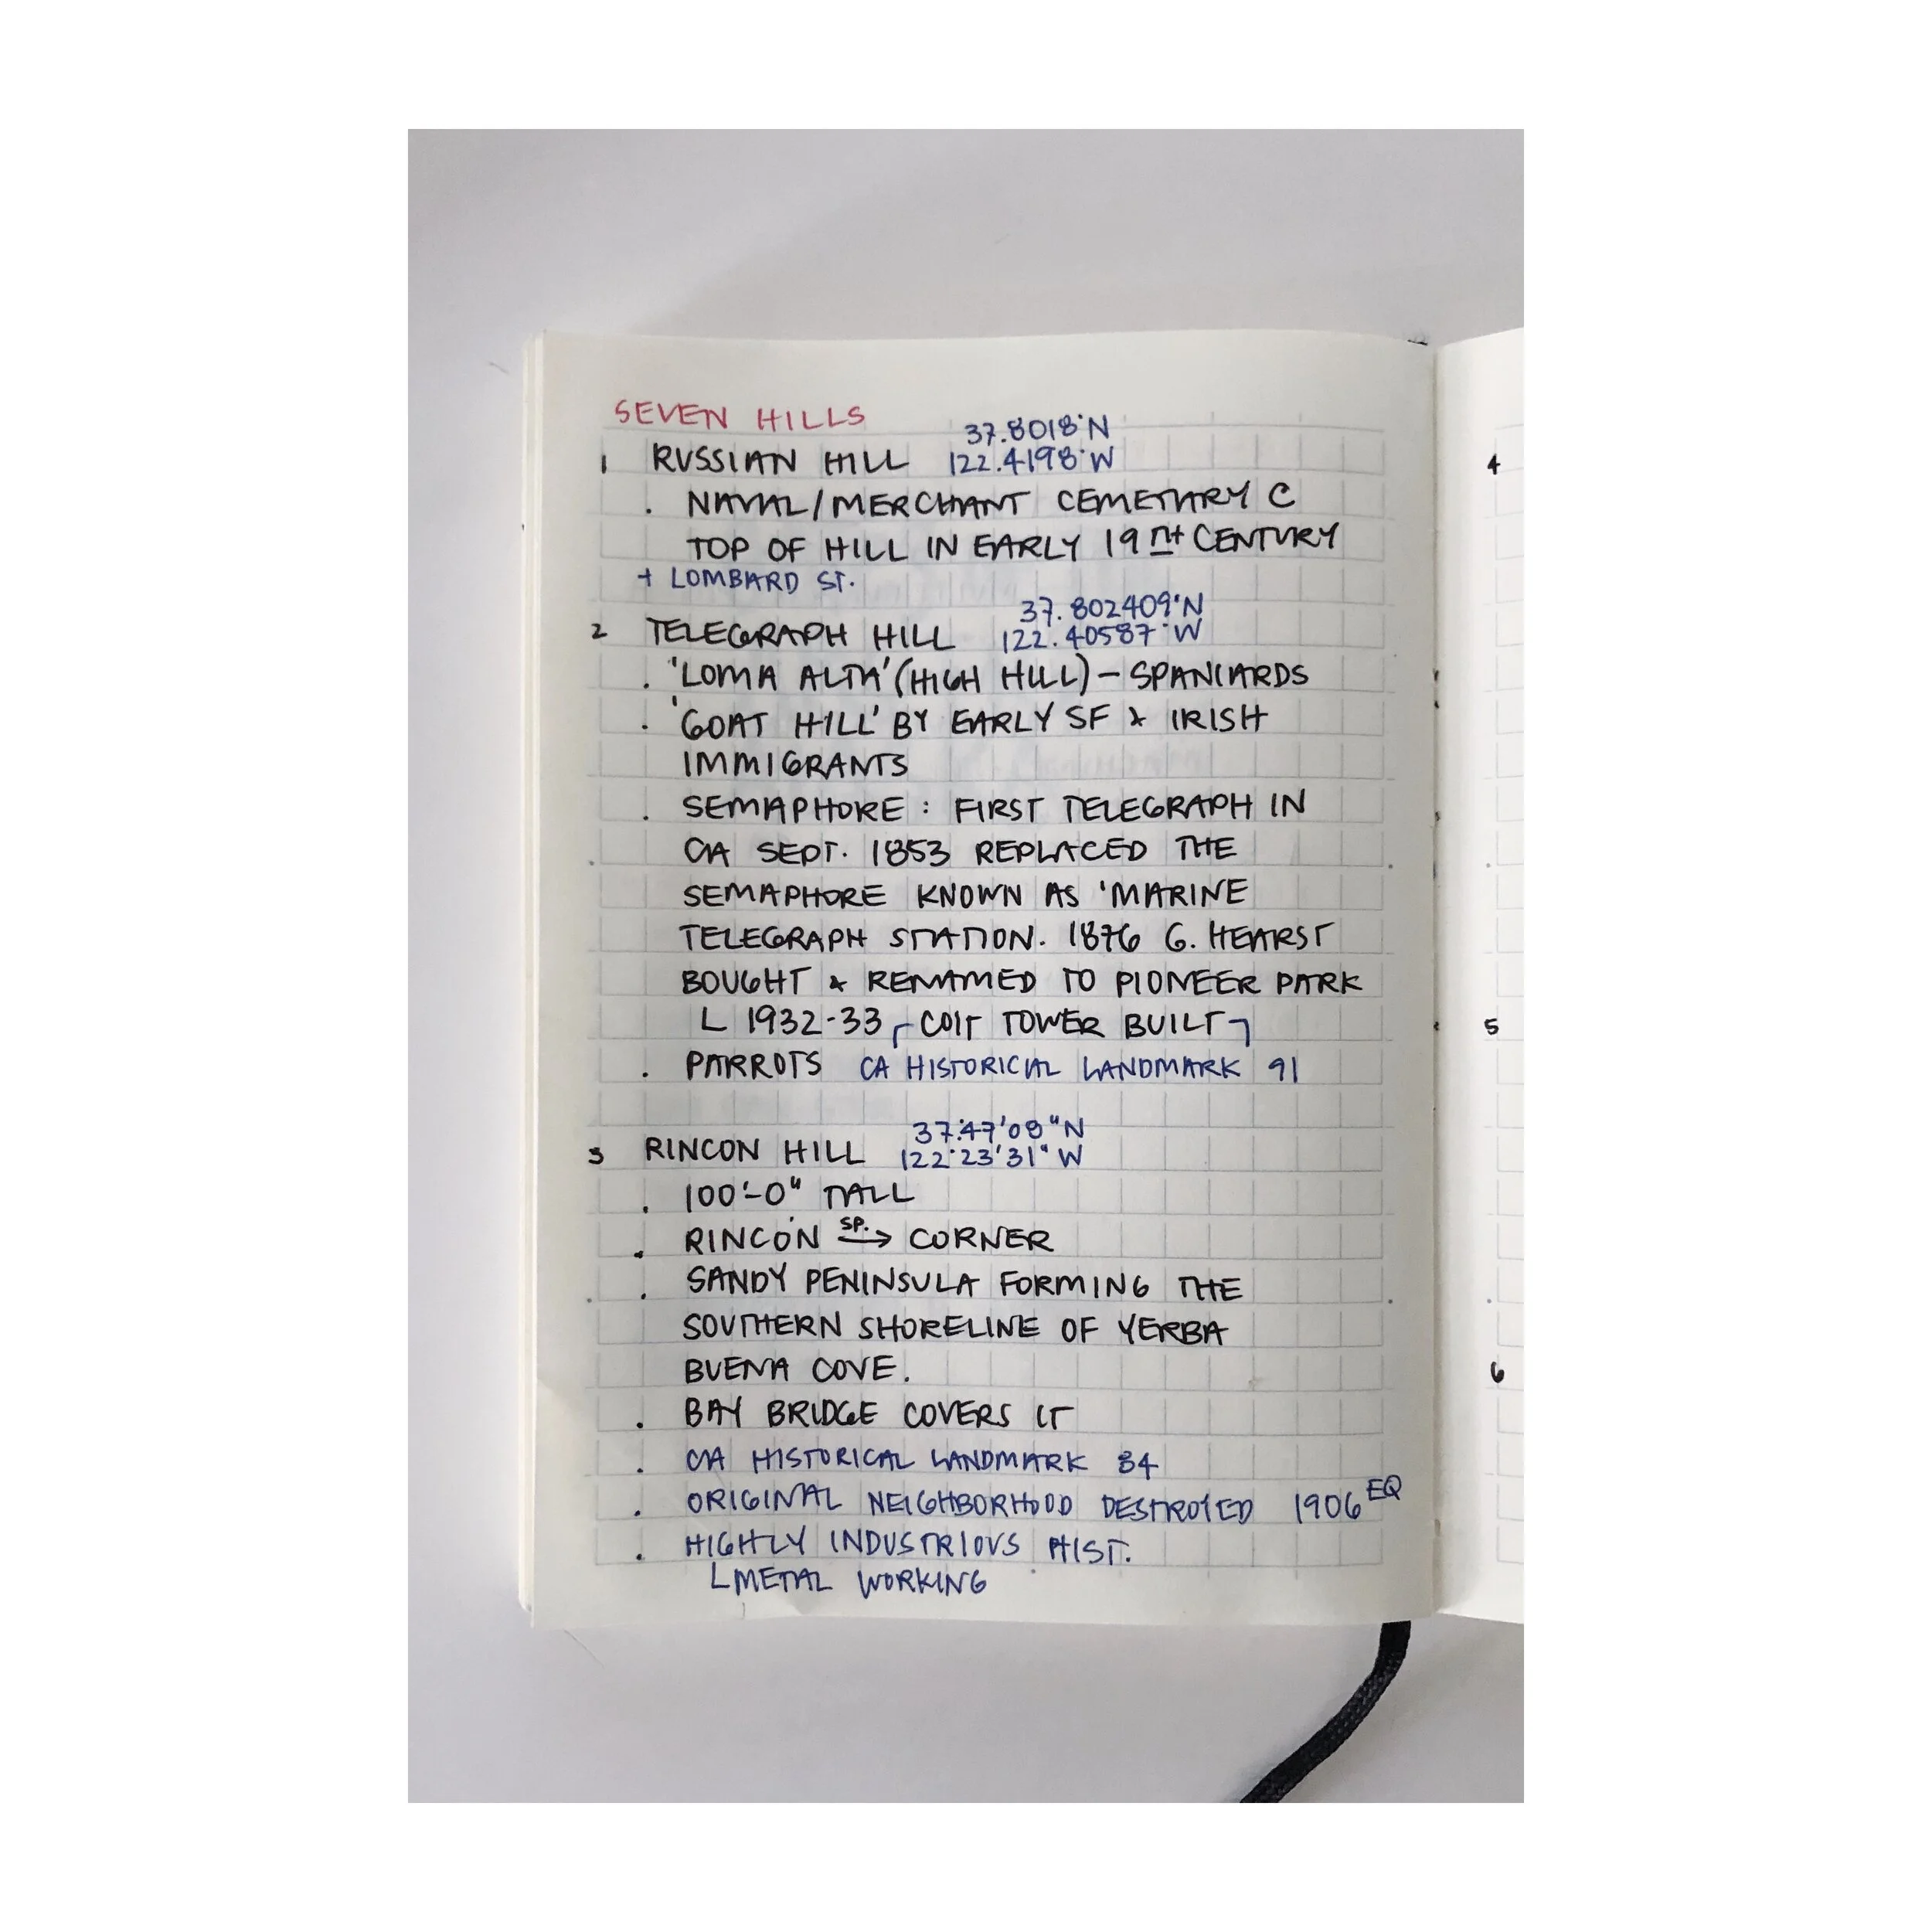 SEVEN HILLS
37.8018°N
1 RUSSIAN HILL 122.4198°W
. NAVAL/MERCHANT CEMETARY C
TOP OF HILL IN EARLY 19TH CENTURY
+ LOMBARD ST.
37.802409°N
2 TELEGRAPH HILL 122.40587°W
. 'LOMA ALTA' (HIGH HILL) – SPANIARDS
. 'GOAT HILL' BY EARLY SF & IRISH
IMMIGRANTS
. SEMAPHORE : FIRST TELEGRAPH IN
CA SEPT. 1853 REPLACED THE
SEMAPHORE KNOWN AS 'MARINE
TELEGRAPH STATION. 1876 G. HEARST
BOUGHT & RENAMED TO PIONEER PARK
L 1932-33 ┌ COIT TOWER BUILT ┐
. PARROTS CA HISTORICAL LANDMARK 91
37°47'08"N
3 RINCON HILL 122°23'31"W
. 100'-0" TALL
. RINCÓN SP. → CORNER
. SANDY PENINSULA FORMING THE
SOUTHERN SHORELINE OF YERBA
BUENA COVE.
. BAY BRIDGE COVERS IT
. CA HISTORICAL LANDMARK 84
. ORIGINAL NEIGHBORHOOD DESTROYED 1906 EQ
. HIGHLY INDUSTRIOUS HIST.
L METAL WORKING
4
5
6